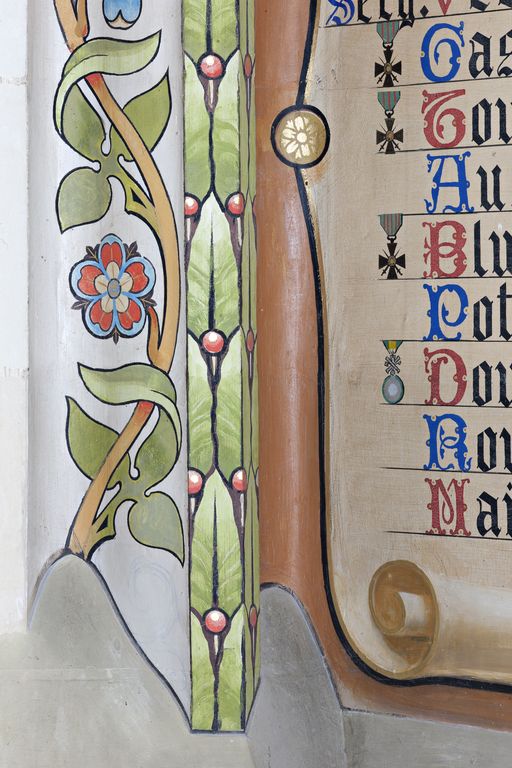 Serg.
Gas
Tou
Au
Blu
Pot
Dou
Rou
Mai